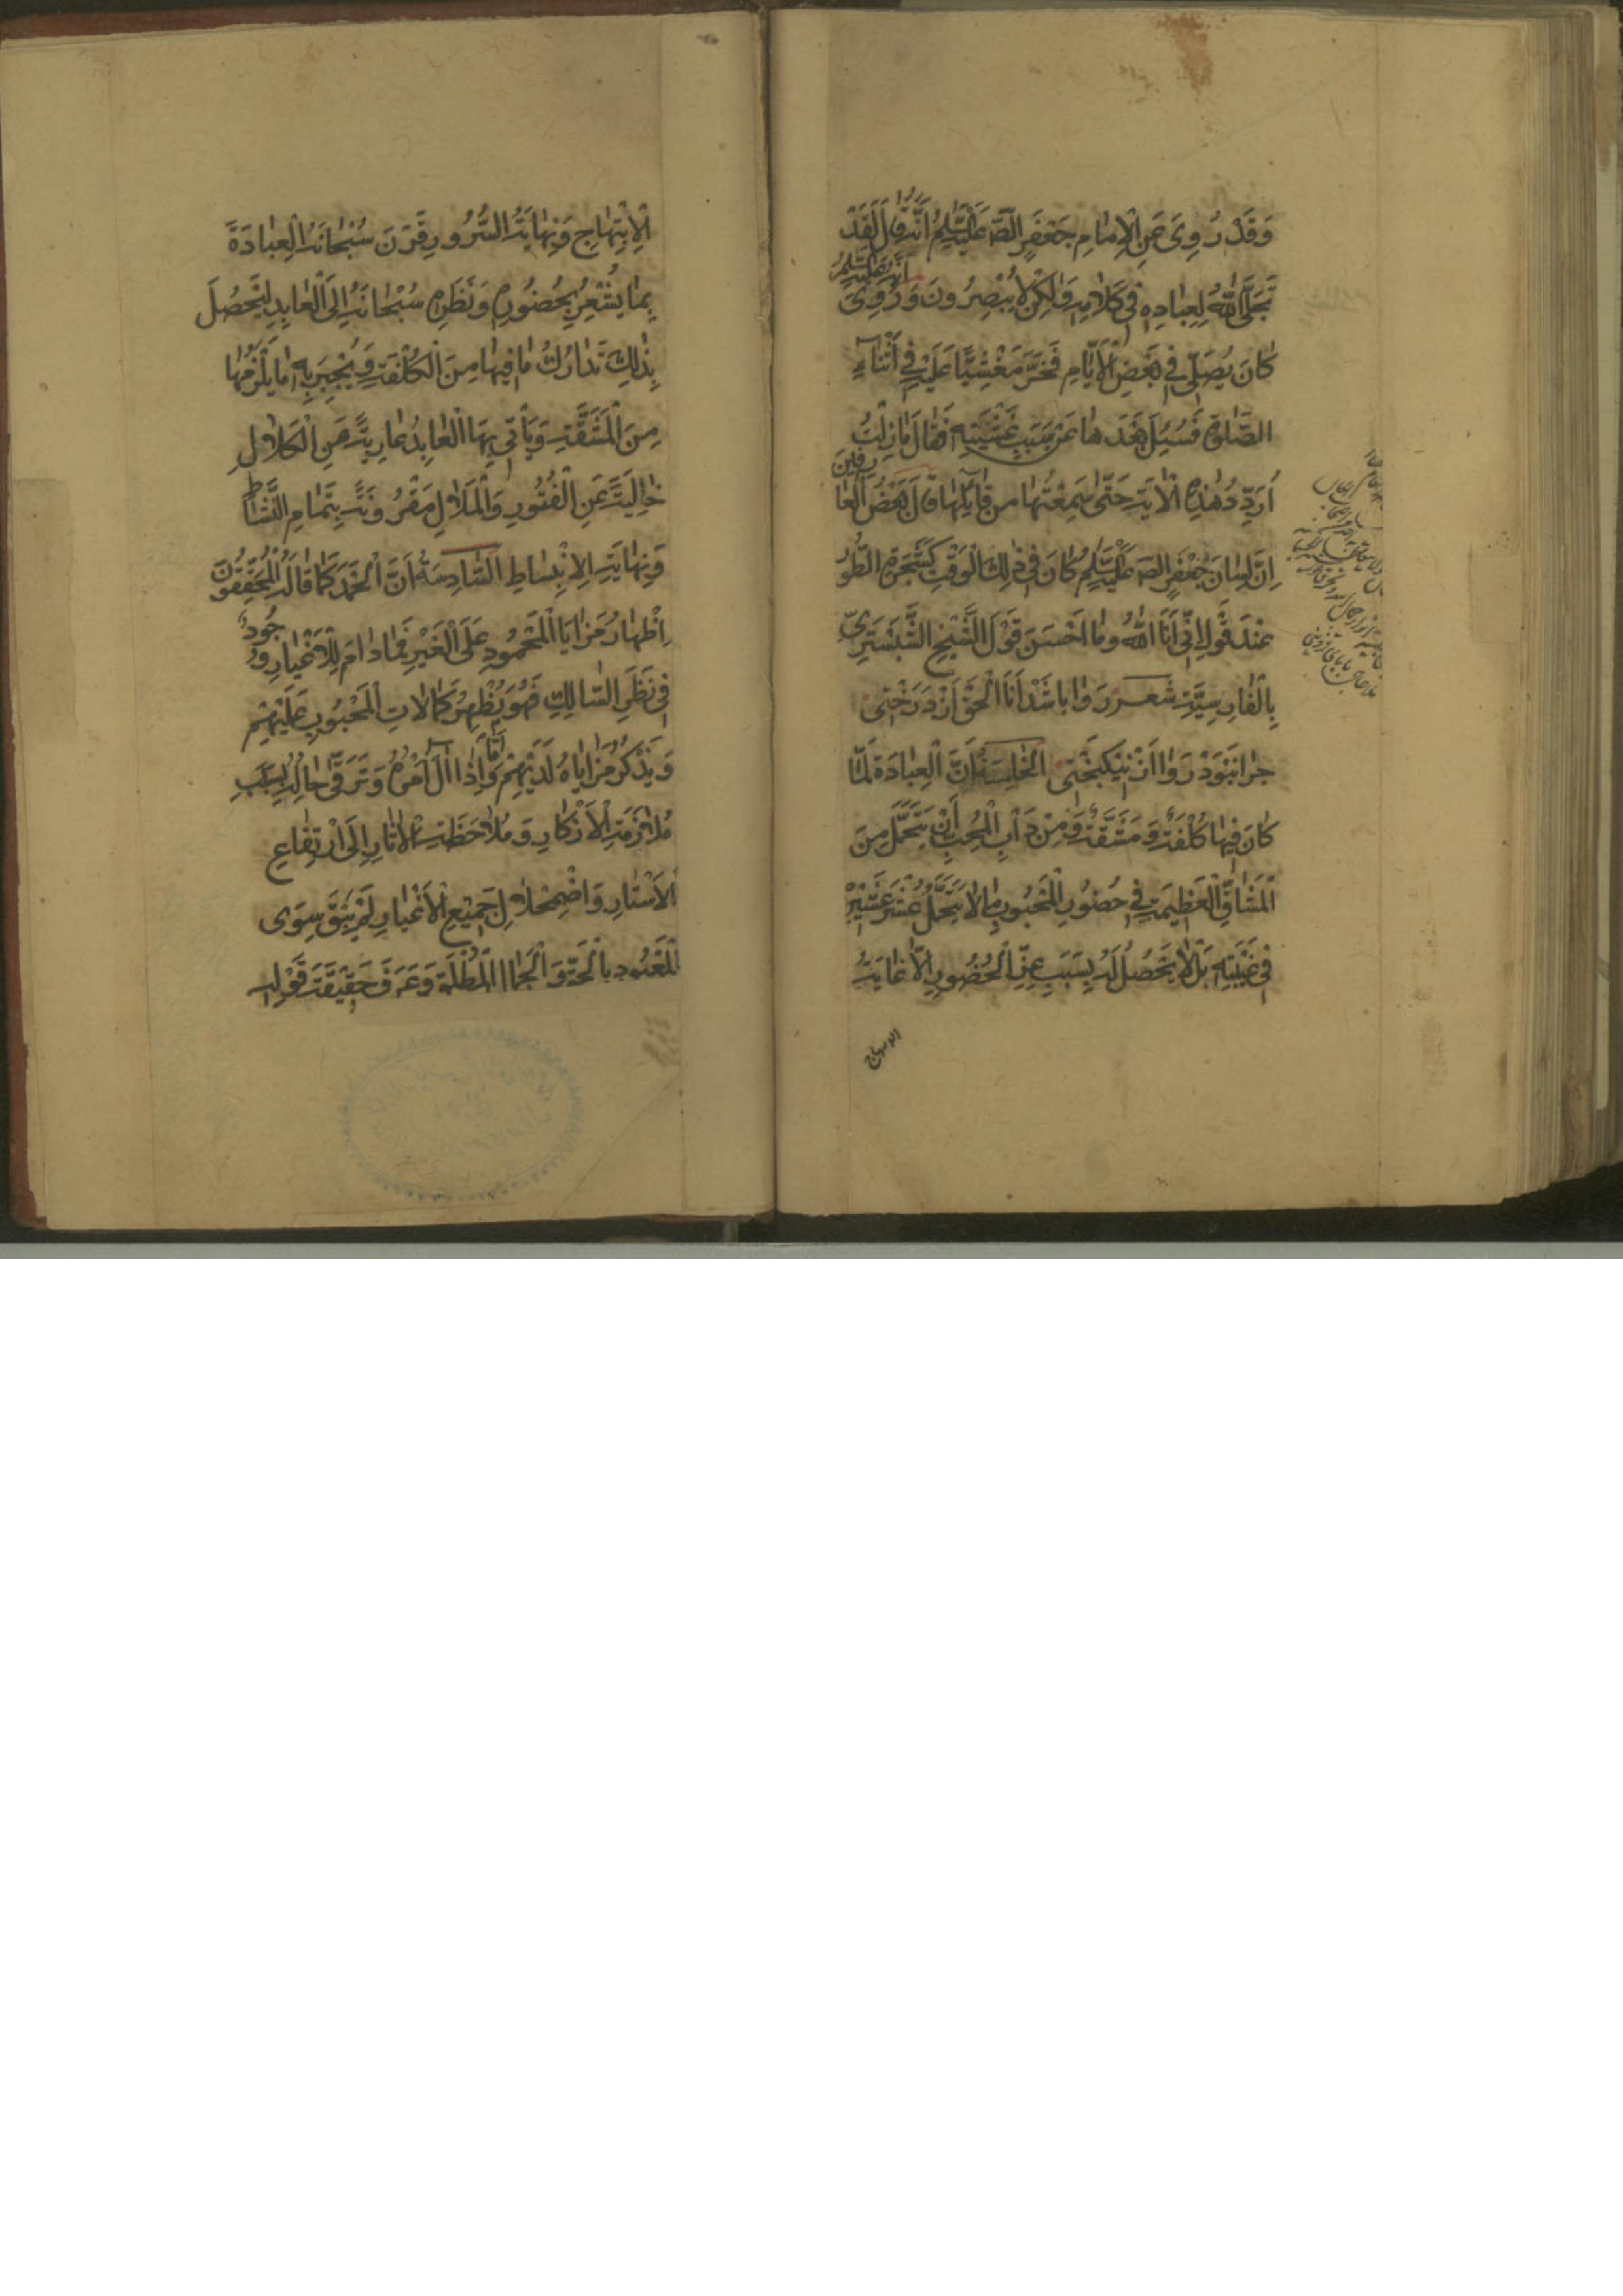 وَقَدْ رُوِىَ عَنِ الْاِمَامِ جَعْفَرٍ الصّه عَلَيْهِ السَّلٰمُ اَنَّهُ قَالَ لَقَدْ
تَجَلَّى اللهُ لِعِبَادِهِ فِى كَلَامِهِ وَلٰكِنْ لَا يُبْصِرُونَ وَ رُوِىَ اَنَّهُ عَلَيْهِ السَّلٰمُ
كَانَ يُصَلِّى فِى بَعْضِ الْاَيَّامِ فَخَرَّ مَغْشِيًّا عَلَيْهِ فِى اَثْنَاءِ
الصَّلٰوةِ فَسُئِلَ بَعْدَهَا عَنْ سَبَبِ غَشْيَتِهِ فَقَالَ مَا زِلْتُ
اُرَدِّدُ هٰذِهِ الْاٰيَةَ حَتّٰى سَمِعْتُهَا مِنْ قَائِلِهَا قَالَ بَعْضُ الْعَارِفِينَ
اِنَّ لِسَانَ جَعْفَرٍ الصه عَلَيْهِ السَّلٰمُ كَانَ فِى ذٰلِكَ الْوَقْتِ كَشَجَرَةِ الطُّورِ
عِنْدَ قَوْلِ اِنِّى اَنَا اللهُ وَمَا اَحْسَنَ قَوْلَ الشَّيْخِ الشَّبَسْتَرِىِّ
بِالْفَارِسِيَّةِ شعر رَوَا بَاشَدْ اَنَا الْحَقُّ اَزْ دَرَخْتِى
چرا نَبْوَدْ رَوَا اَزْ نِيكبَخْتِى الْخَامِسَةُ اَنَّ الْعِبَادَةَ لَمَّا
كَانَ فِيهَا كُلْفَةٌ وَ مَشَقَّةٌ وَ مِنْ دَأْبِ الْمُحِبِّ اَنْ يَتَحَمَّلَ مِنَ
الْمَشَاقِّ الْعَظِيمَةِ فِى حُضُورِ الْمَحْبُوبِ مَا لَا يَتَحَمَّلُ عُشْرَ عَشِيْرِهِ
فِى غَيْبَتِهِ بَلْ لَا يَحْصُلُ لَهُ بِسَبَبِ عِزِّ الْحُضُورِ اِلَّا غَايَةُ
الابتهاج
الْاِبْتِهَاجِ وَنِهَايَةُ السُّرُورِ قَرَنَ سُبْحَانَهُ الْعِبَادَةَ
بِمَا يُشْعِرُ بِحُضُورِهِ وَنَظَرِهِ سُبْحَانَهُ اِلَى الْعَابِدِ لِيَحْصُلَ
بِذٰلِكَ تَدَارُكُ مَا فِيهَا مِنَ الْكُلْفَةِ وَيَنْجَبِرَ بِهِ مَا يَلْزَمُهَا
مِنَ الْمَشَقَّةِ وَيَأْتِىَ بِهَا الْعَابِدُ عَارِيَةً عَنِ الْكَلَالِ
خَالِيَةً عَنِ الْفُتُورِ وَالْمَلَالِ مَقْرُونَةً بِتَمَامِ النَّشَاطِ
وَنِهَايَةِ الْاِنْبِسَاطِ السَّادِسَةُ اَنَّ الْحَمْدَ كَمَا قَالَهُ الْمُحَقِّقُونَ
اِظْهَارُ مَزَايَا الْمَحْمُودِ عَلَى الْغَيْرِ فَمَا دَامَ لِلْاَغْيَارِ وُجُودٌ
فِى نَظَرِ السَّالِكِ فَهُوَ يُظْهِرُ كَمَالَاتِ الْمَحْبُوبِ عَلَيْهِمْ
وَ يَذْكُرُ مَزَايَاهُ لَدَيْهِمْ وَ اَمَّا اِذَا اٰلَ اَمْرُهُ وَ تَرَقّٰى حَالُهُ بِسَبَبِ
مُلَازَمَةِ الْاَذْكَارِ وَ مُلَاحَظَةِ الْاٰثَارِ اِلَى ارْتِفَاعِ
الْاَسْتَارِ وَ اضْمِحْلَالِ جَمِيْعِ الْاَغْيَارِ لَمْ يَبْقَ سِوَى
الْمَعْبُودِ بِالْحَقِّ وَ الْجَمَالِ الْمُطْلَقِ وَ عَرَفَ حَقِيْقَةَ قَوْلِهِ